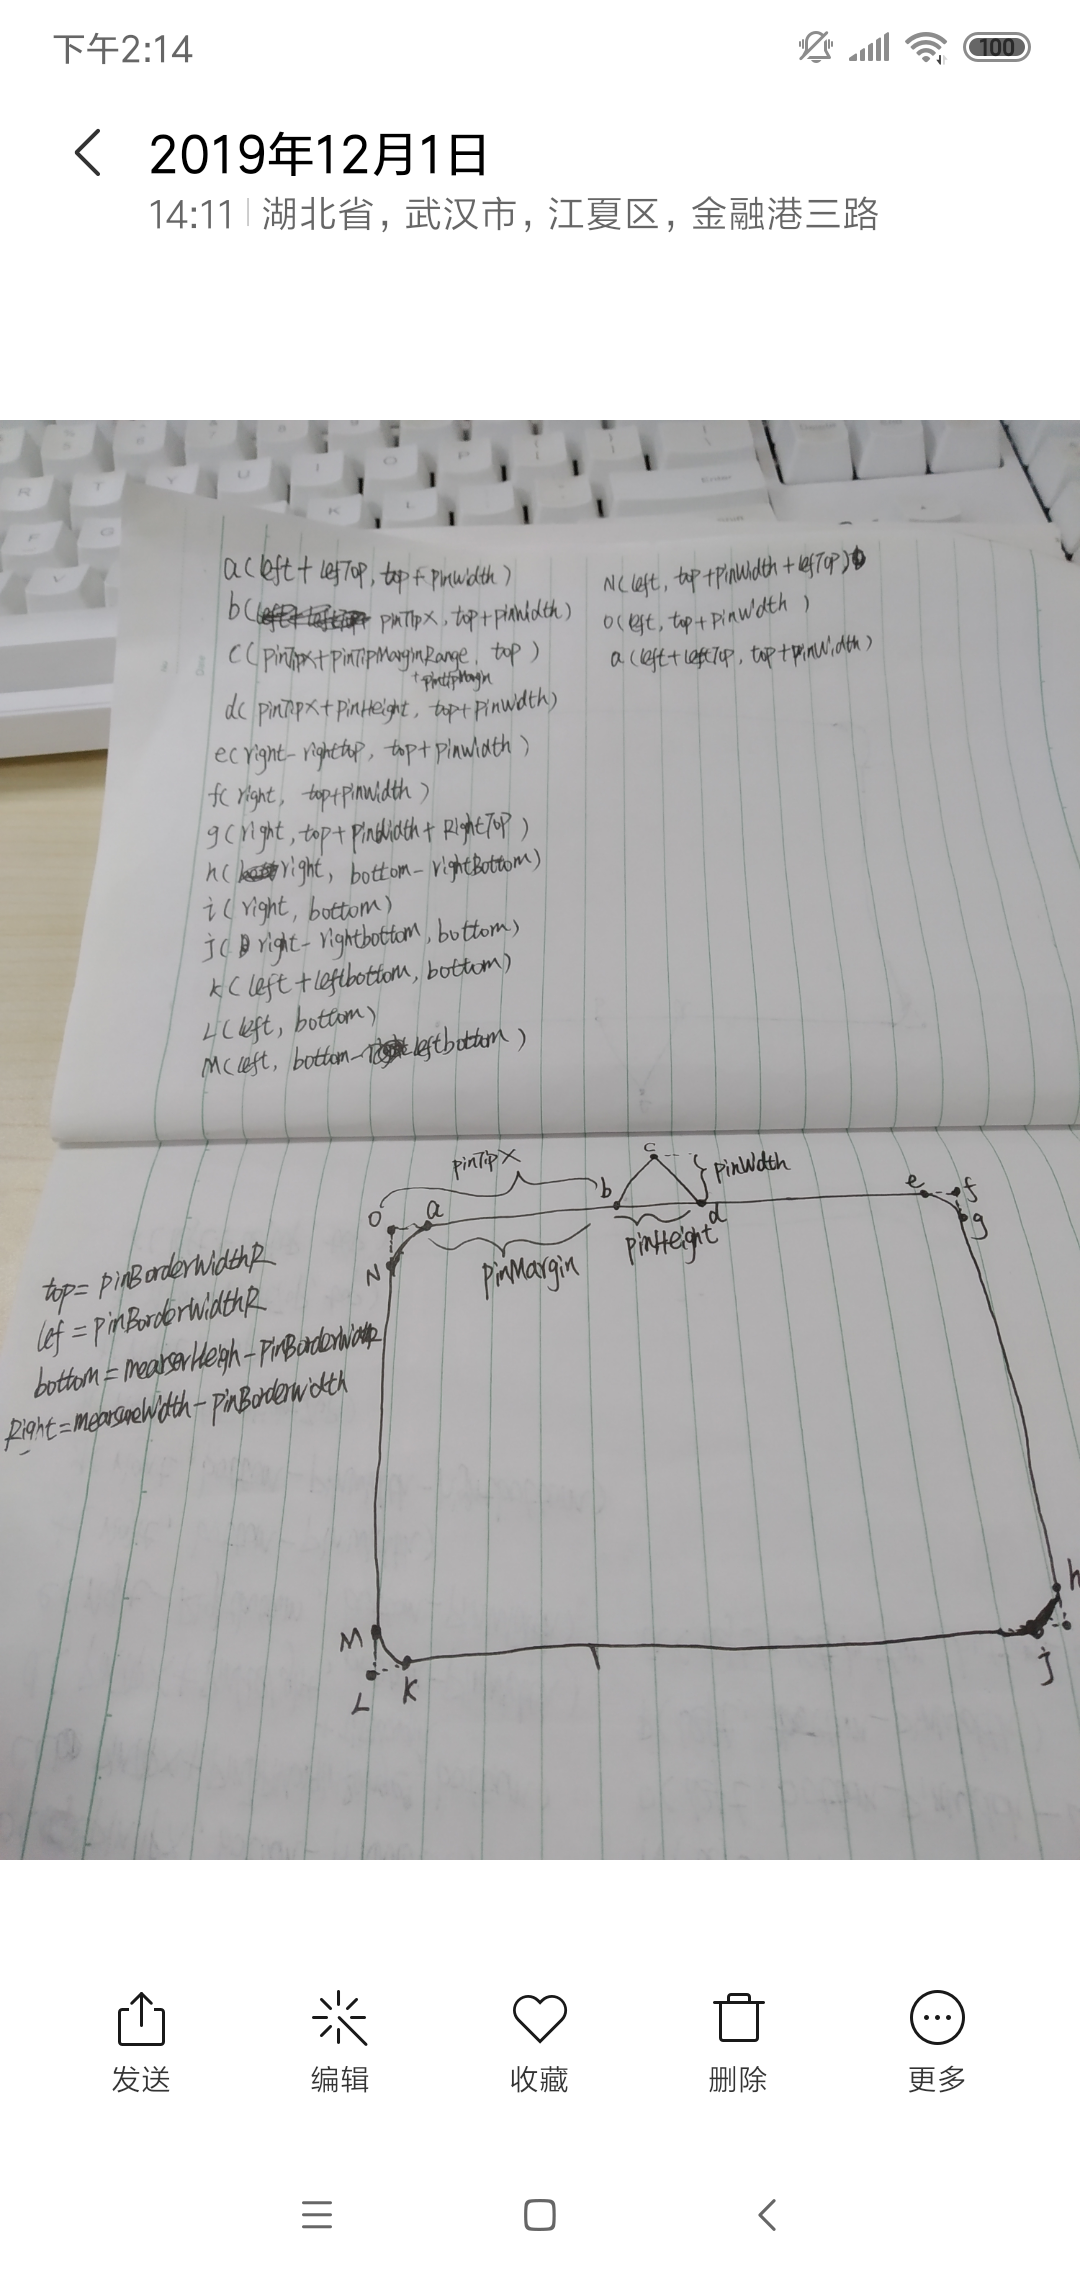 下午2:14
100
2019年12月1日
14:11 湖北省, 武汉市, 江夏区, 金融港三路
a(left+lefTop, top+pinwidth)
b( pinTipX, top+pinWidth)
c(pinTipX+pinTipMarginRange, top)
+pinTipMargin
d( pinTipX+pinHeight, top+pinWidth)
e(right-righttop, top+pinwidth)
f( right, top+pinwidth)
g(right, top+pinWidth+RightTop)
h( right, bottom-rightBottom)
i( right, bottom)
j( right-rightbottom, bottom)
K(left+leftbottom, bottom)
L(left, bottom)
M(left, bottom- leftbottom)
N(left, top+pinWidth+lefTop)
o(left, top+pinWidth)
a(left+leftTop, top+pinWidth)
pinTipX
c
pinWidth
b
e
f
O
a
d
g
pinHeight
pinMargin
N
top=pinBorderWidthR
lef=pinBorderWidthR
bottom=mearserHeigh-PinBorderwidth
Right=mearsureWidth-pinBorderwidth
h
M
j
L
K
R
T
Y
U
I
O
P
F
G
K
L
V
Enter
发送
编辑
收藏
删除
更多